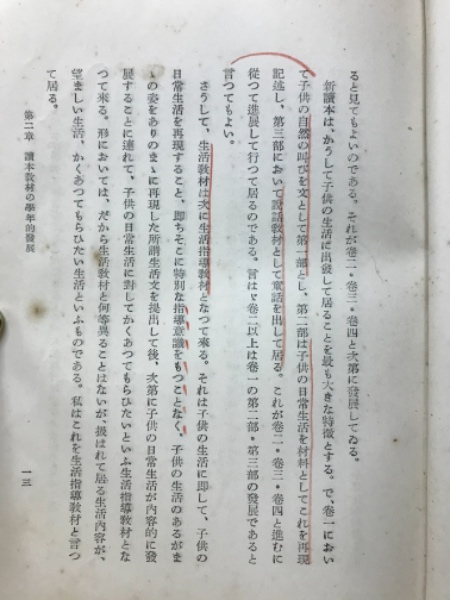 ると見てもよいのである。それが卷二・卷三・卷四と次第に發展してゐる。
新讀本は、かうして子供の生活に出發して居ることを最も大きな特徴とする。で、卷一におい
て子供の自然の叫びを文として第一部とし、第二部は子供の日常生活を材料としてこれを再現
記述し、第三部において說話敎材として童話を出して居る。これが卷二・卷三・卷四と進むに
從つて進展して行つて居るのである。言はゞ卷二以上は卷一の第二部・第三部の發展であると
言つてもよい。
さうして、生活敎材は次に生活指導敎材となつて來る。それは子供の生活に卽して、子供の
日常生活を再現すること、卽ちそこに特別な指導意識をもつことなく、子供の生活のあるがま
ゝの姿をありのまゝに再現した所謂生活文を提出して後、次第に子供の日常生活が內容的に發
展することに連れて、子供の日常生活に對してかくあつてもらひたいといふ生活指導敎材とな
つて來る。形においては、だから生活敎材と何等異ることはないが、扱はれて居る生活內容が、
望ましい生活、かくあつてもらひたい生活といふものである。私はこれを生活指導敎材と言つ
て居る。
第二章 讀本敎材の學年的發展
一三